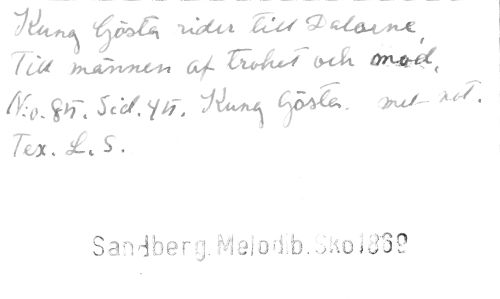 Kung Gösta rider till Dalarne,
Till männen af trohet och mod.
N:o. 85. Sid. 45. Kung Gösta. met not.
Tex. L. S.
Sandberg. Melodib. Sko 1869